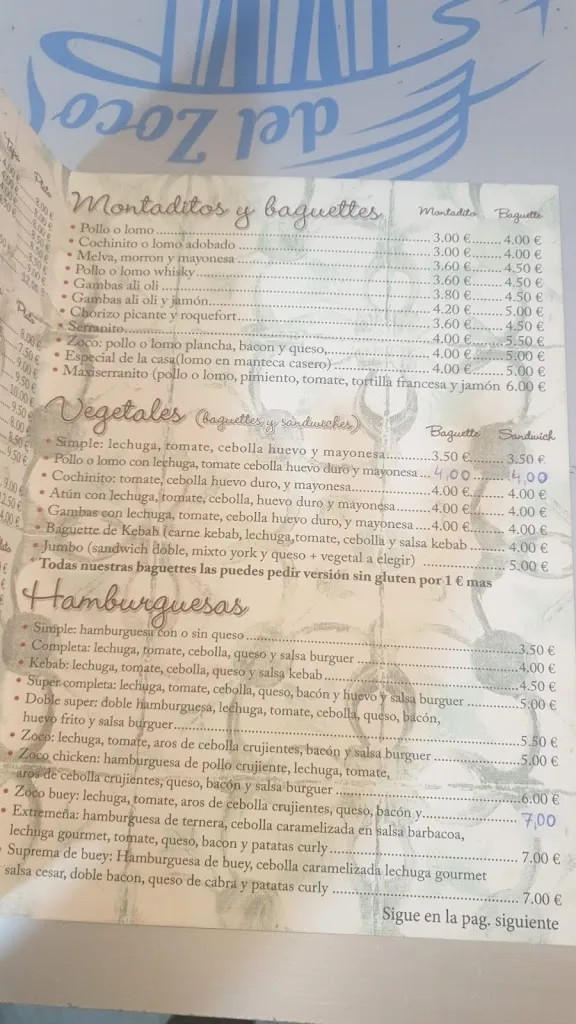 del Zoco
Montaditos y baguettes Montadito Baguette
• Pollo o lomo 3.00 € 4.00 €
• Cochinito o lomo adobado 3.00 € 4.00 €
• Melva, morron y mayonesa 3.60 € 4.50 €
• Pollo o lomo whisky 3.60 € 4.50 €
• Gambas ali oli 3.80 € 4.50 €
• Gambas ali oli y jamón 4.20 € 5.00 €
• Chorizo picante y roquefort 3.60 € 4.50 €
• Serranito 4.00 € 5.50 €
• Zoco: pollo o lomo plancha, bacon y queso, 4.00 € 5.00 €
• Especial de la casa(lomo en manteca casero) 4.00 € 5.00 €
• Maxiserranito (pollo o lomo, pimiento, tomate, tortilla francesa y jamón 6.00 €
Vegetales (baguettes y sandwiches) Baguette Sandwich
• Simple: lechuga, tomate, cebolla huevo y mayonesa 3.50 € 3.50 €
• Pollo o lomo con lechuga, tomate cebolla huevo duro y mayonesa 4,00 4,00
• Cochinito: tomate, cebolla huevo duro, y mayonesa 4.00 € 4.00 €
• Atún con lechuga, tomate, cebolla, huevo duro y mayonesa 4.00 € 4.00 €
• Gambas con lechuga, tomate, cebolla huevo duro, y mayonesa 4.00 € 4.00 €
• Baguette de Kebab (carne kebab, lechuga,tomate, cebolla y salsa kebab 4.00 €
• Jumbo (sandwich doble, mixto york y queso + vegetal a elegir) 5.00 €
* Todas nuestras baguettes las puedes pedir versión sin gluten por 1 € mas
Hamburguesas
• Simple: hamburguesa con o sin queso 3.50 €
• Completa: lechuga, tomate, cebolla, queso y salsa burguer 4.00 €
• Kebab: lechuga, tomate, cebolla, queso y salsa kebab 4.50 €
• Super completa: lechuga, tomate, cebolla, queso, bacón y huevo y salsa burguer 5.00 €
• Doble super: doble hamburguesa, lechuga, tomate, cebolla, queso, bacón,
huevo frito y salsa burguer 5.50 €
• Zoco: lechuga, tomate, aros de cebolla crujientes, bacón y salsa burguer 5.00 €
• Zoco chicken: hamburguesa de pollo crujiente, lechuga, tomate,
aros de cebolla crujientes, queso, bacón y salsa burguer 6.00 €
• Zoco buey: lechuga, tomate, aros de cebolla crujientes, queso, bacón y 7,00
• Extremeña: hamburguesa de ternera, cebolla caramelizada en salsa barbacoa,
lechuga gourmet, tomate, queso, bacon y patatas curly 7.00 €
• Suprema de buey: Hamburguesa de buey, cebolla caramelizada lechuga gourmet
salsa cesar, doble bacon, queso de cabra y patatas curly 7.00 €
Sigue en la pag. siguiente